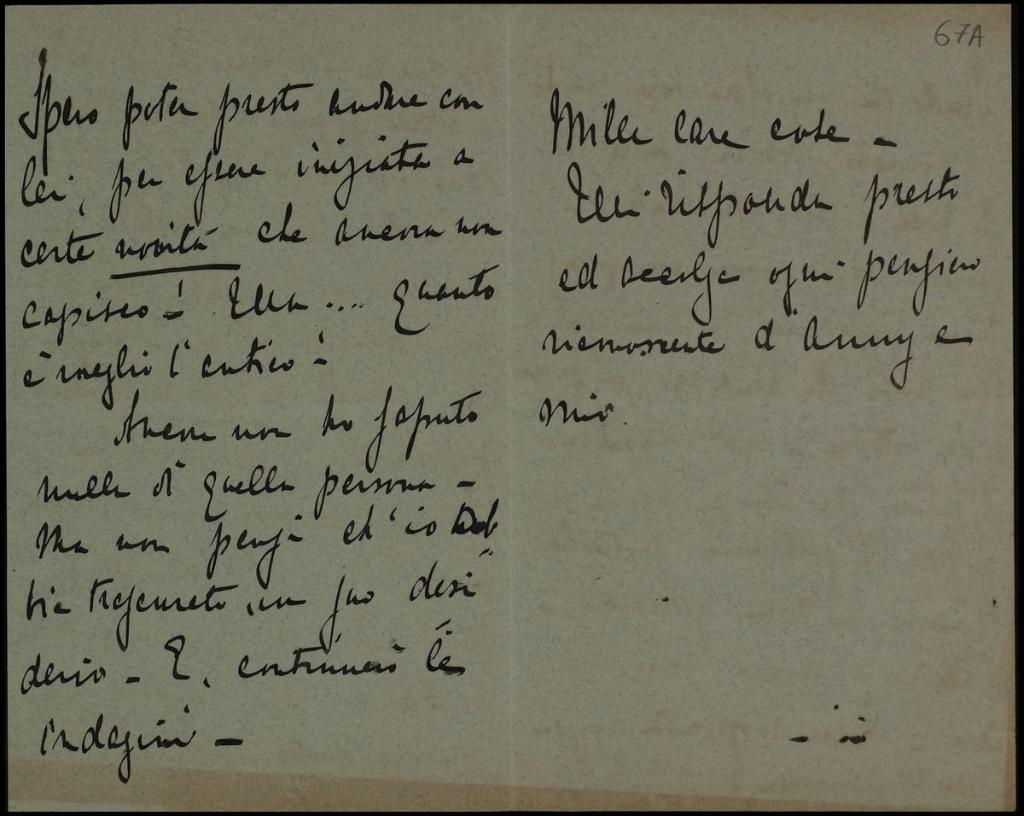 Spero poter presto andare con
lei, per essere iniziata a
certe novità che ancora non
capisco! Ella .... quanto
è meglio l'antico!
Ancora non ho saputo
nulla di quella persona -
Ma non pensi ch'io deb
bia trascurato un suo desi
derio - E. continuerò le
indagini -
67A
Mille care cose -
Mi risponda presto
ed accolga ogni pensiero
riconoscente d'Anny e
mio.